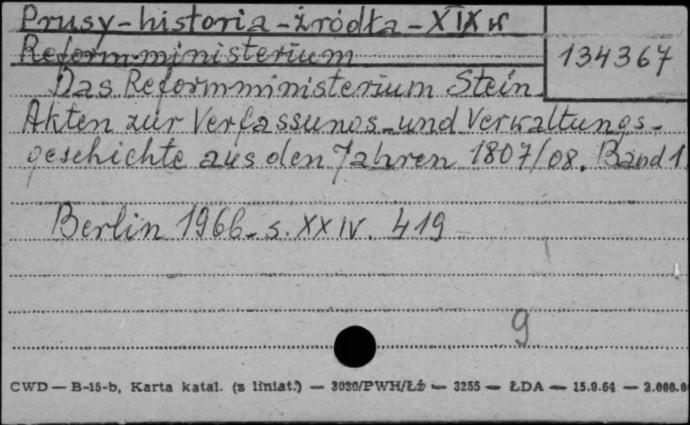 Prusy-historia-źródła-XIX w
Reformministerium
134367
Das Reformministerium Stein.
Akten zur Verfassungs-und Verwaltungs-
geschichte aus den Jahren 1807/08. Band 1
Berlin 1966. s. XXIV. 419
9
CWD — B-15-b, Karta katal. (z liniat.) — 3020/PWH/Łź — 3255 — ŁDA — 15.9.64 — 2.000.0